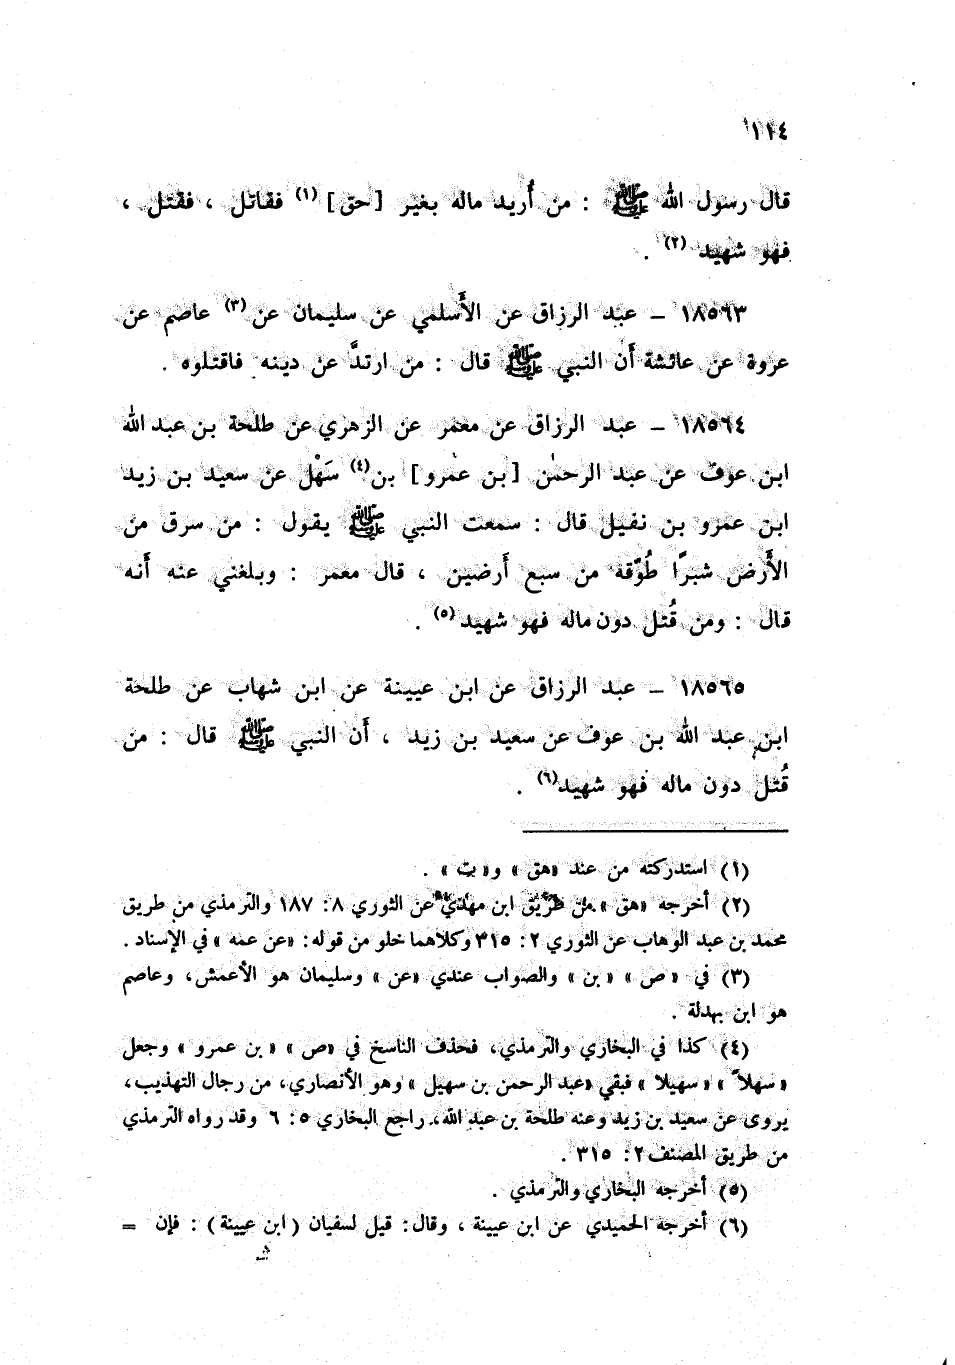 ١١٤
قال رسول الله ﷺ : من أُريد ماله بغير [حق] (١) فقاتل ، فقتل ،
فهو شهيد (٢) .
١٨٥٦٣ – عبد الرزاق عن الأَسلمي عن سليمان عن (٣) عاصم عن
عروة عن عائشة أَن النبي ﷺ قال : من ارتدَّ عن دينه فاقتلوه .
١٨٥٦٤ – عبد الرزاق عن معمر عن الزهري عن طلحة بن عبد الله
ابن عوف عن عبد الرحمٰن [بن عمرو] بن (٤) سَهْل عن سعيد بن زيد
ابن عمرو بن نفيل قال : سمعت النبي ﷺ يقول : من سرق من
الأَرض شبرًا طُوّقه من سبع أَرضين ، قال معمر : وبلغني عنه أَنه
قال : ومن قُتل دون ماله فهو شهيد (٥) .
١٨٥٦٥ – عبد الرزاق عن ابن عيينة عن ابن شهاب عن طلحة
ابن عبد الله بن عوف عن سعيد بن زيد ، أَن النبي ﷺ قال : من
قُتل دون ماله فهو شهيد (٦) .
(١) استدركته من عند «هق» و«ت» .
(٢) أخرجه «هق» من طريق ابن مهدي عن الثوري ٨: ١٨٧ والترمذي من طريق
محمد بن عبد الوهاب عن الثوري ٢: ٣١٥ وكلاهما خلو من قوله: «عن عمه» في الإسناد .
(٣) في «ص» «بن» والصواب عندي «عن» وسليمان هو الأعمش، وعاصم
هو ابن بهدلة .
(٤) كذا في البخاري والترمذي، فحذف الناسخ في «ص» «بن عمرو» وجعل
«سهلاً» «سهيلا» فبقي «عبد الرحمن بن سهيل» وهو الأنصاري، من رجال التهذيب،
يروى عن سعيد بن زيد وعنه طلحة بن عبد الله، راجع البخاري ٥: ٦ وقد رواه الترمذي
من طريق المصنف ٢: ٣١٥ .
(٥) أخرجه البخاري والترمذي .
(٦) أخرجه الحميدي عن ابن عيينة ، وقال: قيل لسفيان (ابن عيينة) : فإن =